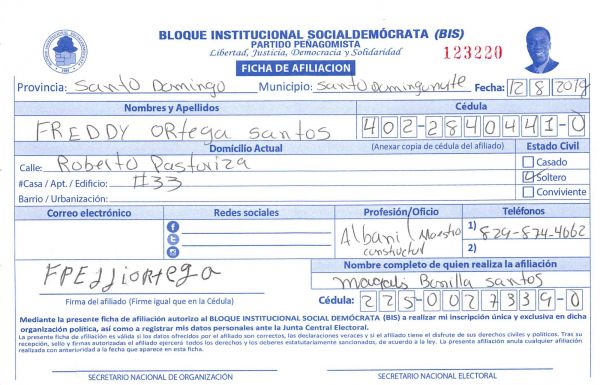 BLOQUE INSTITUCIONAL SOCIALDEMÓCRATA (BIS)
PARTIDO PEÑAGOMISTA
Libertad, Justicia, Democracia y Solidaridad
123220
FICHA DE AFILIACION
Provincia: Santo Domingo Municipio: Santo Domingo norte Fecha: 12 8 2019
Nombres y Apellidos Cédula
FREDDY Ortega Santos 402-2840441-0
Domicilio Actual (Anexar copia de cédula del afiliado) Estado Civil
Calle: Roberto Pastoriza Casado
#Casa / Apt. / Edificio: #33 Soltero
Barrio / Urbanización: Conviviente
Correo electrónico Redes sociales Profesión/Oficio Teléfonos
Albanil Maestro constructor 1) 829-874-4662
2)
Nombre completo de quien realiza la afiliación
Magalis Bonilla Santos
Firma del afiliado (Firme igual que en la Cédula) Cédula: 225-0027339-0
Mediante la presente ficha de afiliación autorizo al BLOQUE INSTITUCIONAL SOCIAL DEMÓCRATA (BIS) a realizar mi inscripción única y exclusiva en dicha
organización política, así como a registrar mis datos personales ante la Junta Central Electoral.
La presente ficha de afiliación es válida si los datos ofrecidos por el afiliado son correctos, las declaraciones veraces y si el afiliado tiene el disfrute de sus derechos civiles y políticos. Tras su
recepción, sello y firmas autorizadas el afiliado ejercerá todos los derechos y los deberes estatutariamente sancionados, de acuerdo a la ley. La presente afiliación anula cualquier afiliación
realizada con anterioridad a la fecha que aparece en esta ficha.
SECRETARIO NACIONAL DE ORGANIZACIÓN SECRETARIO NACIONAL ELECTORAL